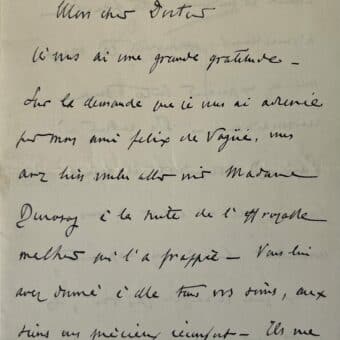 Mon cher Docteur
Je vous ai une grande gratitude -
Sur la demande que je vous ai adressée
par mon ami Felix de Vogüé, vous
avez bien voulu aller voir Madame
à la suite de l'effroyable
malheur qui l'a frappée - Vous lui
avez donné à elle tous vos soins, aux
siens un précieux réconfort - Ils me